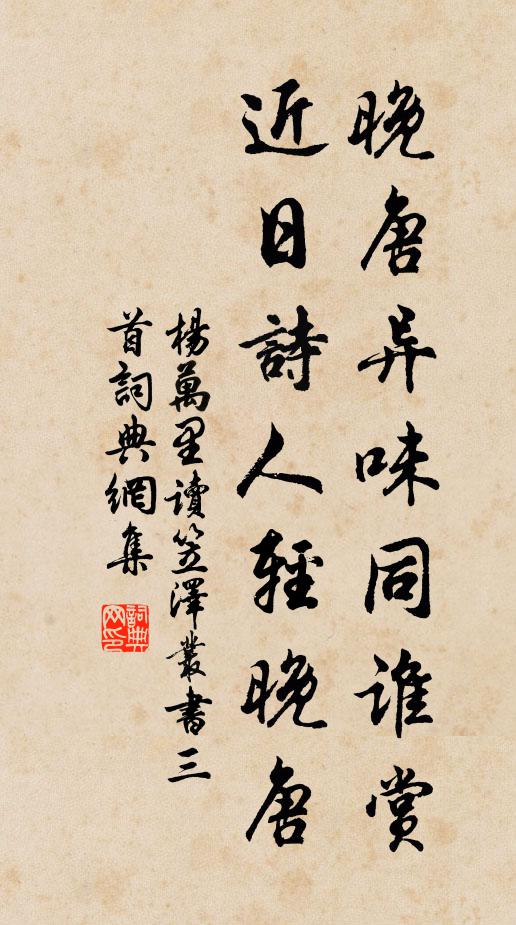 晚唐异味同誰賞
近日詩人輕晚唐
楊萬里讀笠澤叢書三
首詞典網集
詞典网印